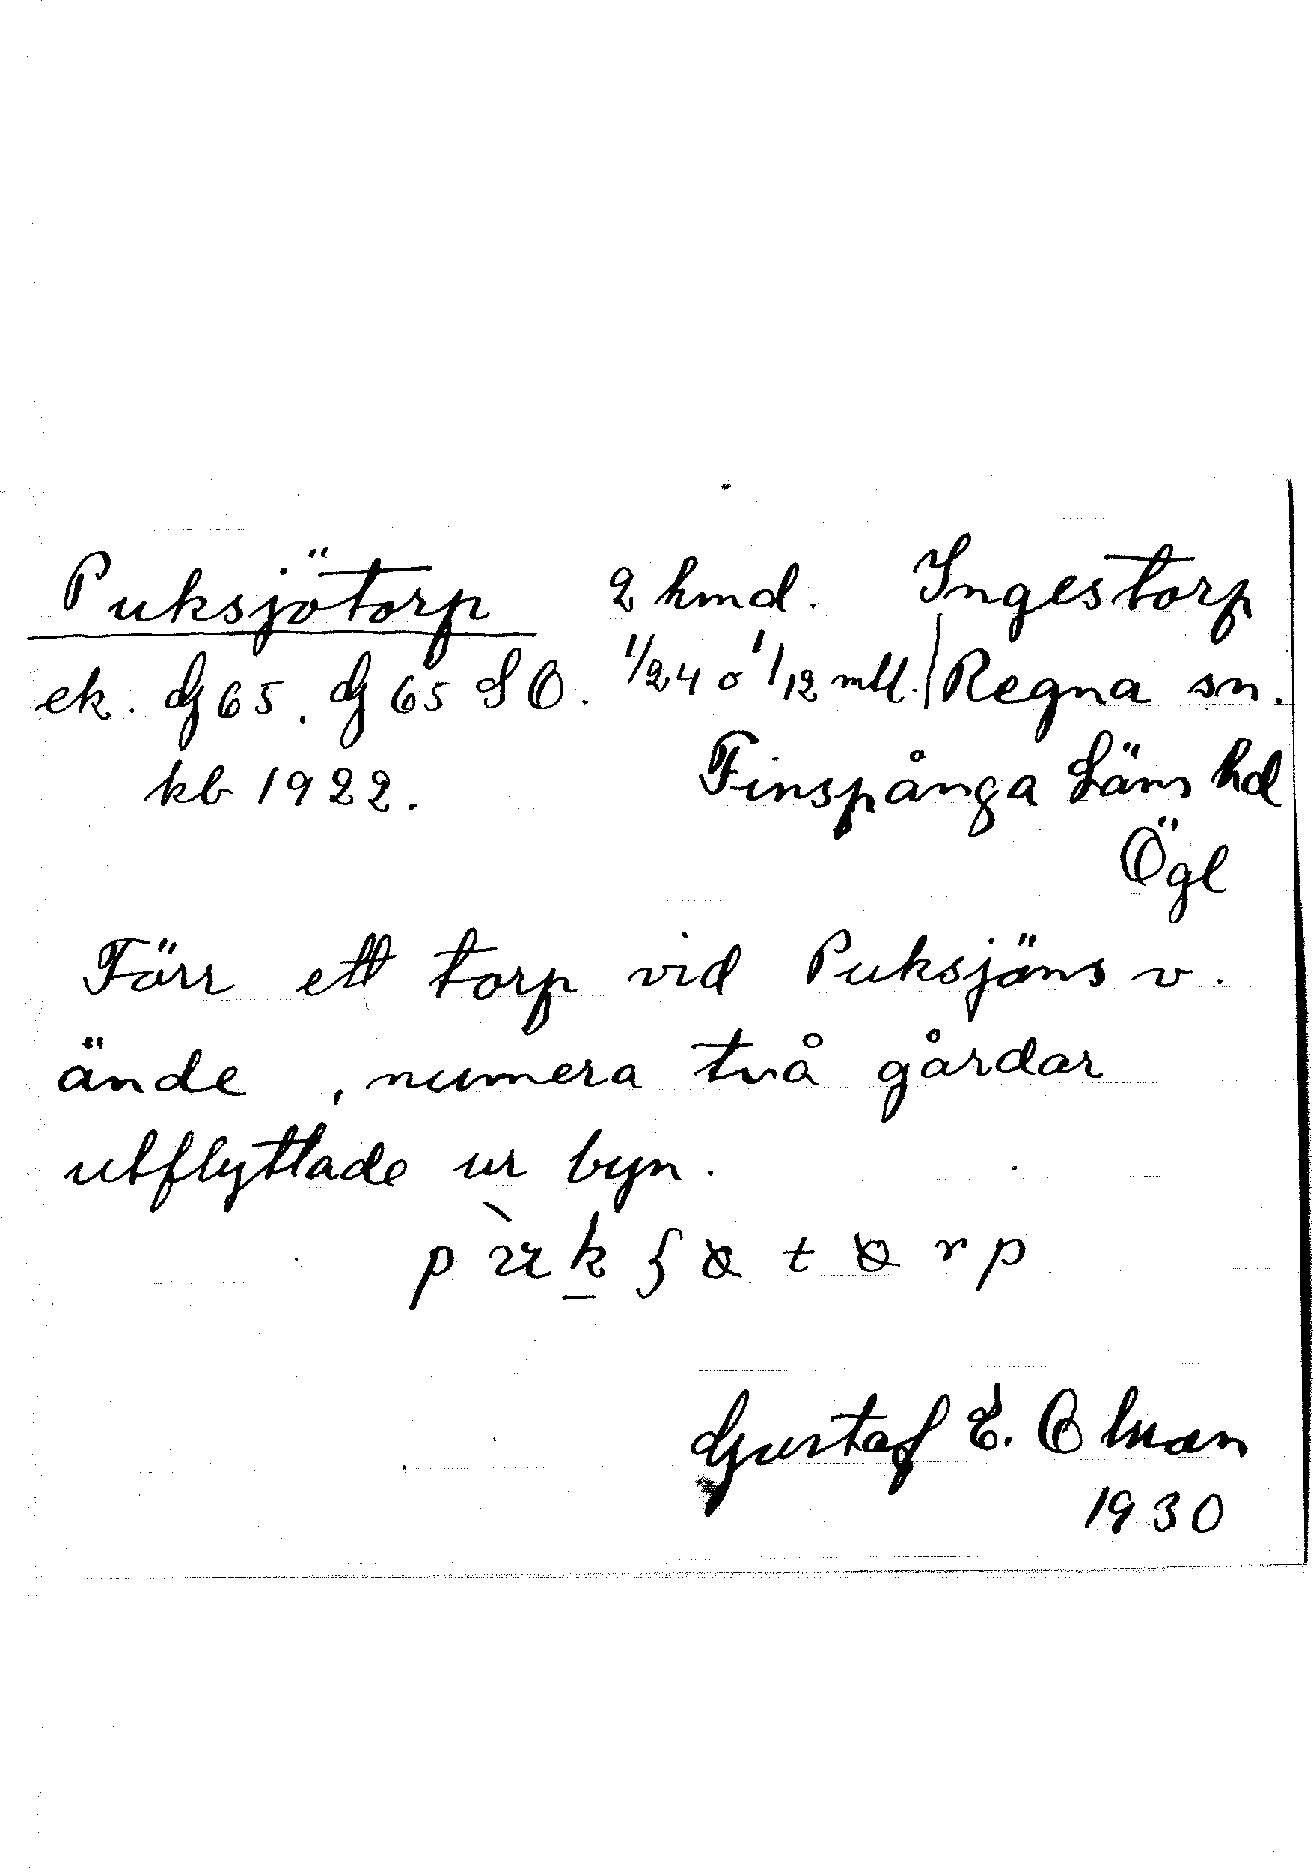 Puksjötorp 2 hmd. Ingestorp
ek. G 65. G 65 SO. 1/24 o 1/12 mtl. Regna sn.
kb 1922. Finspånga Läns hd
Ögl
Förr ett torp vid Puksjöns v.
ände, numera två gårdar
utflyttade ur byn.
Gustaf E.
1930